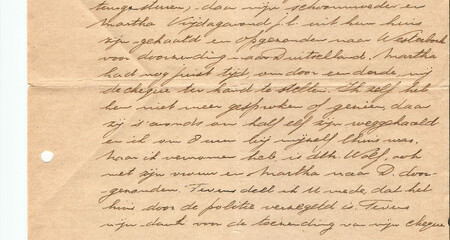 teruggesturen, daar mijn schoonmoeder en
Martha Vrijdagavond j.l. uit hun huis
zijn gehaald en opgezonden naar Westerbork
voor doorzending naar Duitschland. Martha
had nog juist tijd, om door een derde mij
de cheque ter hand te stellen. Ik zelf heb
hen niet meer gesproken of gezien, daar
zij 's avonds om half elf zijn weggehaald
en ik om 8 uur bij mijzelf thuis was.
Naar ik vernomen heb, is dhr. Wolf, ook
met zijn vrouw en Martha naar D. door-
gezonden. Tevens deel ik U mede, dat het
huis door de politie verzegeld is. Tevens
mijn dank voor de toezending van mijn cheque